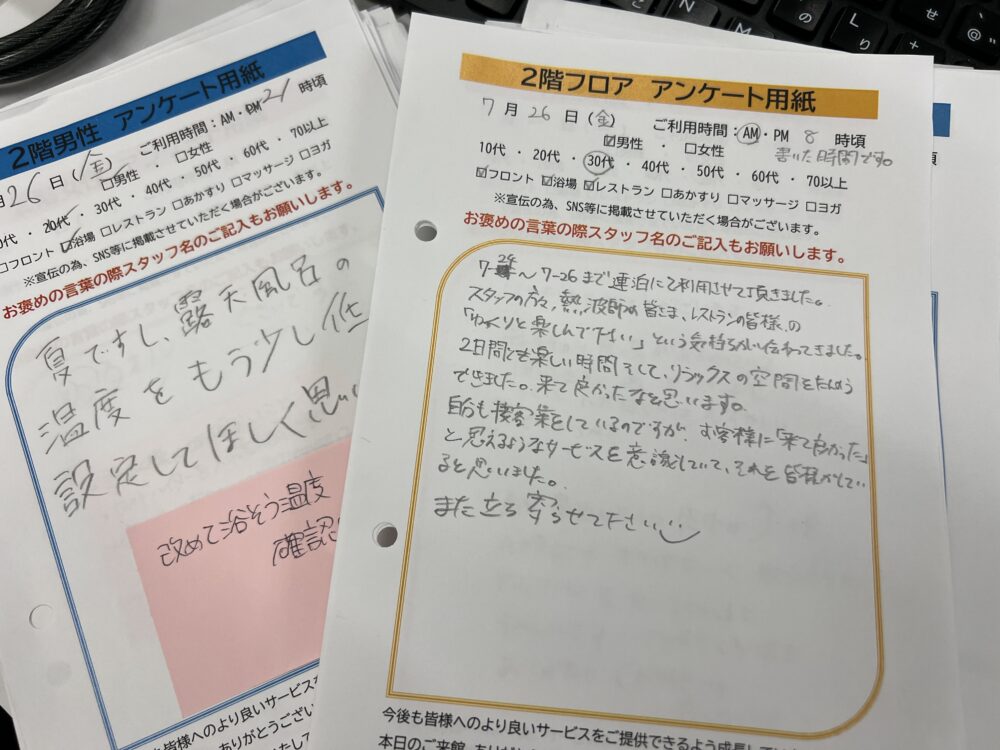 2階男性 アンケート用紙
月26日(金) ご利用時間:AM・PM 21 時頃
□男性 ・ □女性
0代 ・ 20代 ・ 30代 ・ 40代 ・ 50代 ・ 60代 ・ 70以上
□フロント ☑浴場 □レストラン □あかすり □マッサージ □ヨガ
※宣伝の為、SNS等に掲載させていただく場合がございます。
お褒めの言葉の際スタッフ名のご記入もお願いします。
夏ですし、露天風呂の
温度をもう少し低
設定してほしく思い
改めて浴そう温度
確認
皆様へのより良いサービスを
ありがとうござい
2階フロア アンケート用紙
7月26日(金) ご利用時間:AM・PM 8 時頃
☑男性 ・ □女性 書いた時間です。
10代 ・ 20代 ・ 30代 ・ 40代 ・ 50代 ・ 60代 ・ 70以上
☑フロント ☑浴場 ☑レストラン □あかすり □マッサージ □ヨガ
※宣伝の為、SNS等に掲載させていただく場合がございます。
お褒めの言葉の際スタッフ名のご記入もお願いします。
7-24~7-26まで連泊にて利用させて頂きました。
スタッフの方々、熱波師の皆さま、レストランの皆様の
「ゆっくりと楽しんで下さい」という気持ちがい伝わってきました。
2日間でも楽しい時間そして、リラックスの空間をたんのう
できました。来て良かったなと思います。
自分も接客業をしているのですが、お客様に「来て良かった」
と思えるようなサービスを意識していて、それを皆様がしてい
ると思いました。
また立ち寄らせて下さい
今後も皆様へのより良いサービスをご提供できるよう成長して
本日のご来館、ありが
N
M
の
L
り
せ
@